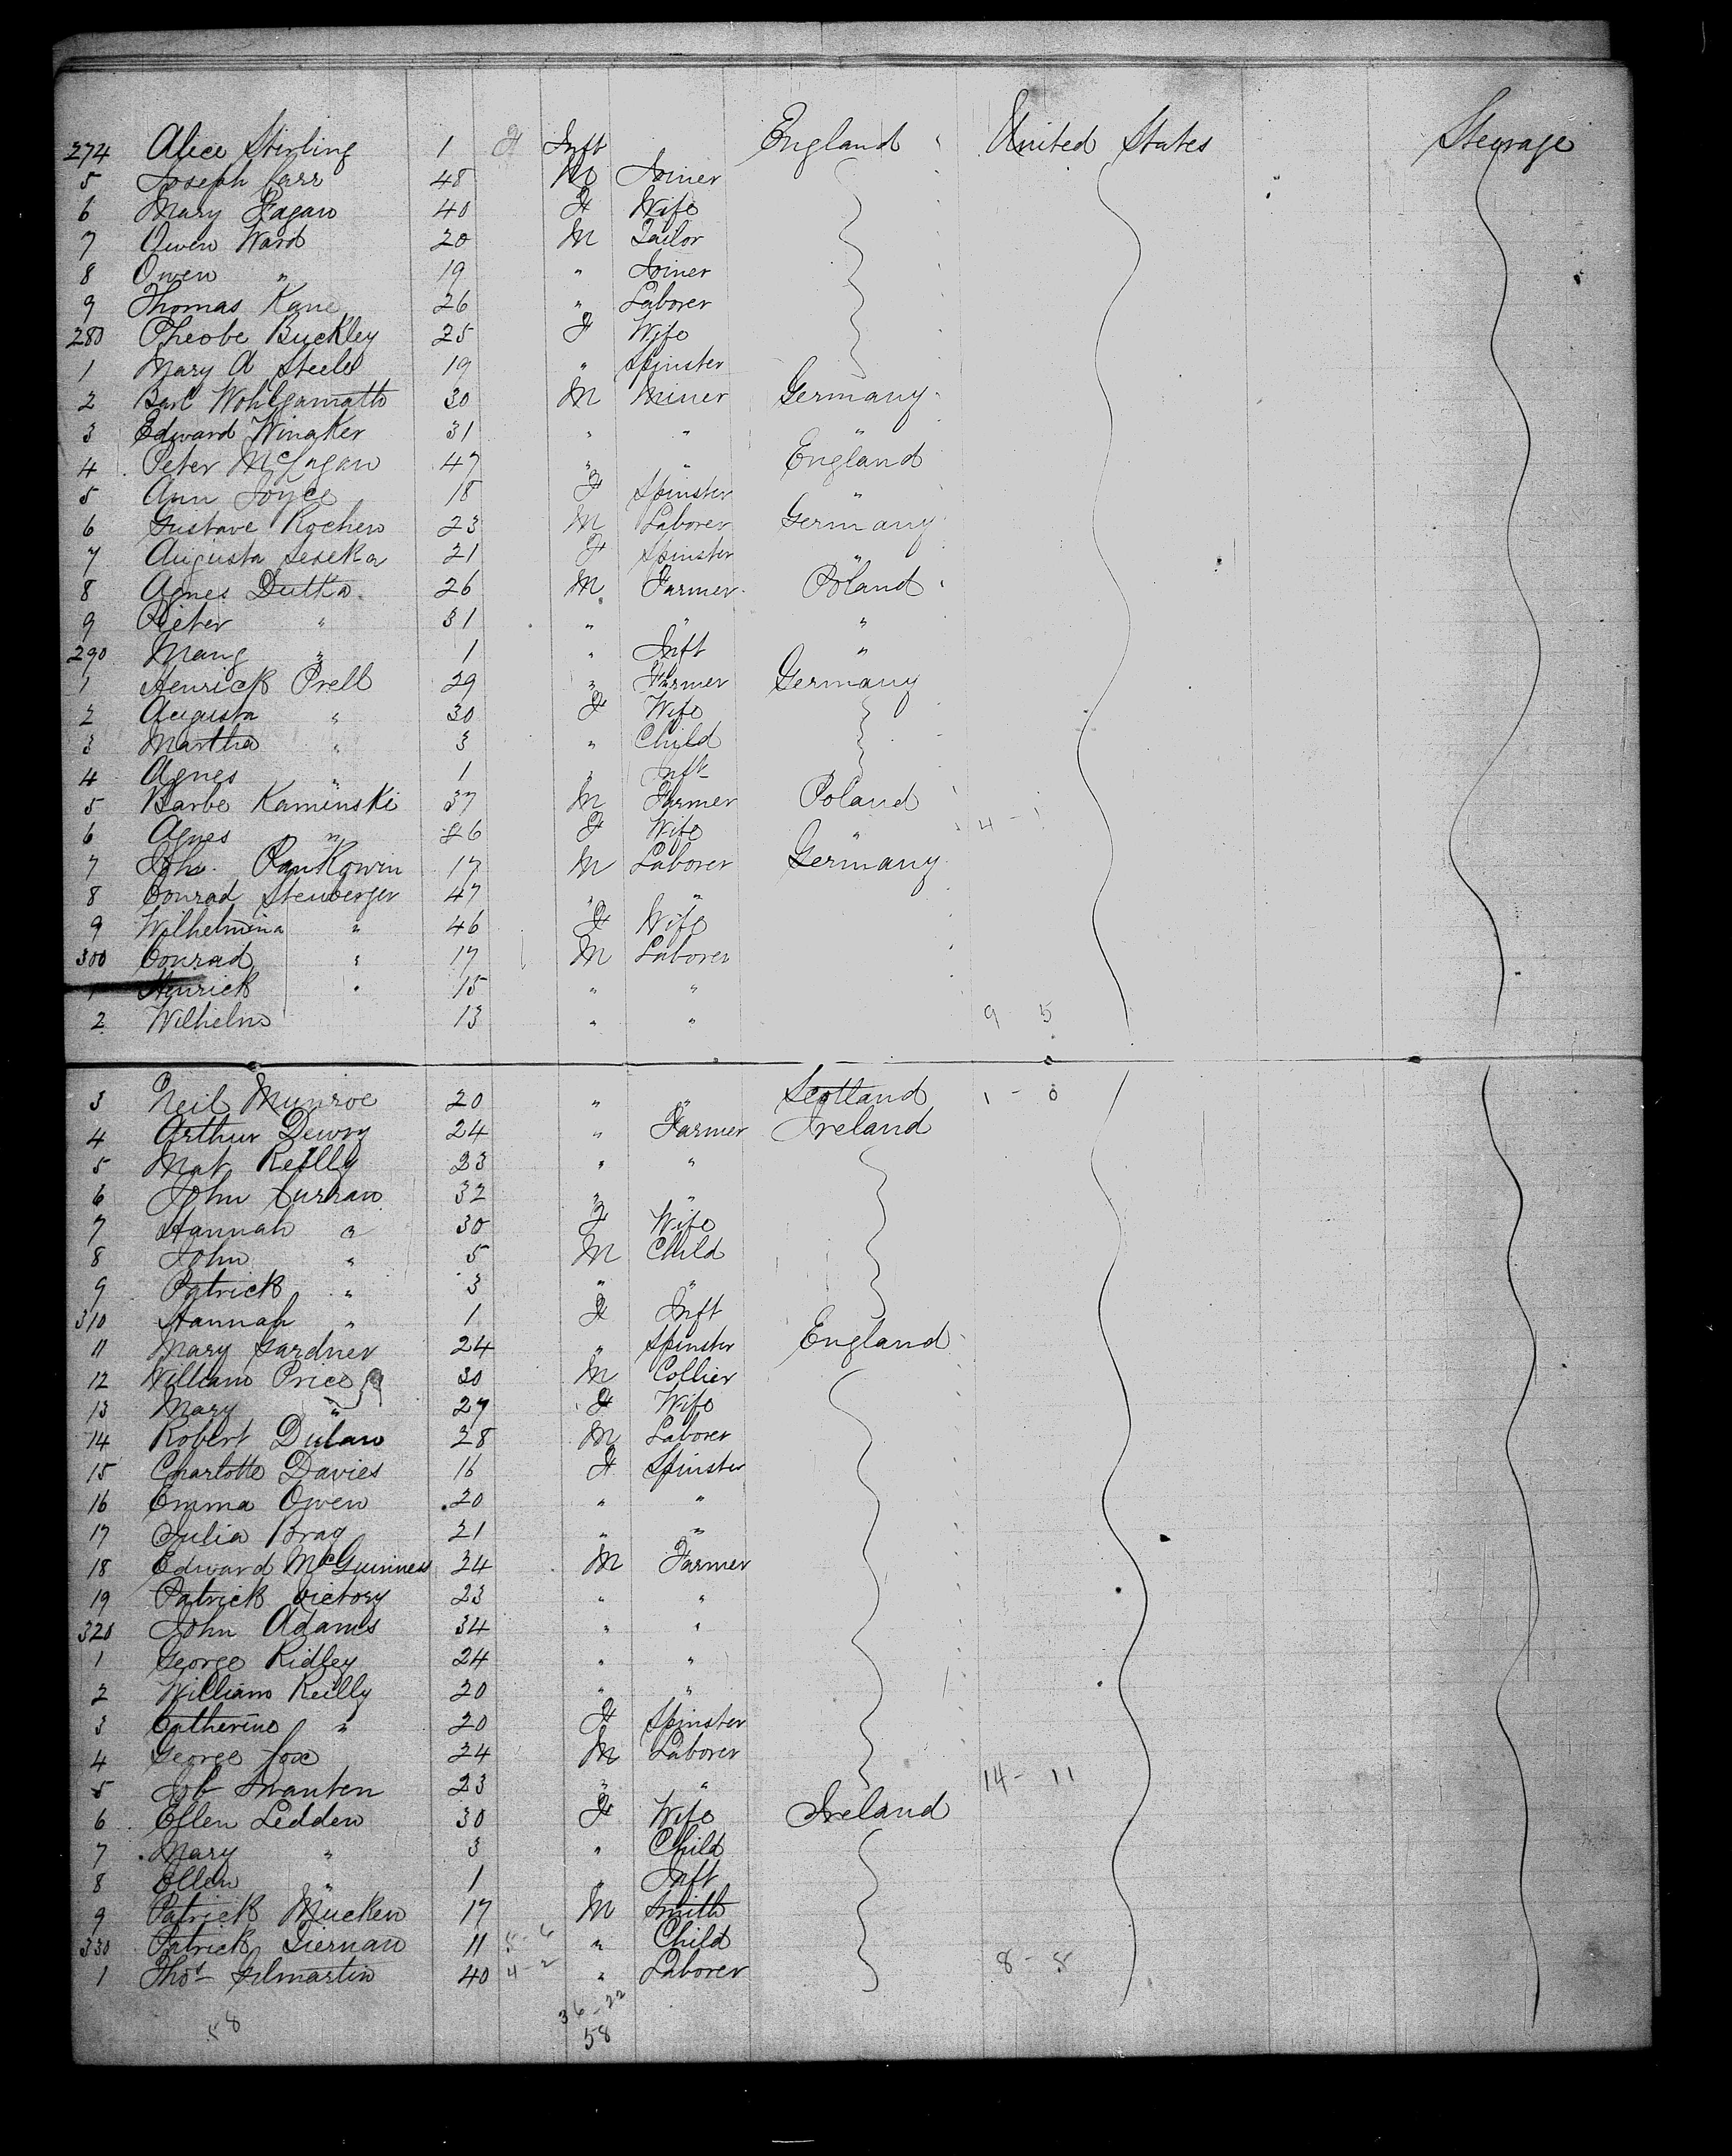 274 Alice Stirling 1 F Inft England United States Steerage
5 Joseph Carr 48 M Joiner
6 Mary Fagan 40 F Wife
7 Owen Ward 20 M Tailor
8 Owen " 19 " Joiner
9 Thomas Kane 26 " Laborer
280 Pheobe Buckley 25 F Wife
1 Mary A Steele 19 " Spinster
2 Wohlgamath 30 M Miner Germany
3 Edward Winaker 31 " " "
4 Peter 47 " " England
5 Ann Joyce 18 F Spinster "
6 Gustave Rochen 23 M Laborer Germany
7 Augusta 21 F Spinster "
8 Agnes Dutka 26 M Farmer Poland
9 Peter " 31 " " "
290 " 1 " Inft "
1 Henrick Prell 29 " Farmer Germany
2 Augusta " 30 F Wife
3 Martha " 3 " Child
4 Agnes " 1 " Inft
5 Barbe Kaminski 37 M Farmer Poland
6 Agnes " 26 F Wife " 4 - 1
7 Joh. Pankowin 17 M Laborer Germany
8 Conrad Stenberger 47 " "
9 Wilhelmina " 46 F Wife
300 Conrad " 17 M Laborer
1 Henrick " 15 " "
2 Wilhelm 13 " " 9 5
3 Neil Munroe 20 " " Scotland 1 - 0
4 Arthur Dewry 24 " Farmer Ireland
5 Mat Reilly 23 " "
6 John Curran 32 " "
7 Hannah " 30 F Wife
8 John " 5 M Child
9 Patrick " 3 " "
310 Hannah " 1 F Inft
11 Mary Gardner 24 " Spinster England
12 William Price 30 M Collier
13 Mary " 27 F Wife
14 Robert Dulan 28 M Laborer
15 Charlotte Davies 16 F Spinster
16 Emma Owen 20 " "
17 Julia Bray 21 " "
18 Edward McGuinness 24 M Farmer
19 Patrick Victory 23 " "
320 John Adams 34 " "
1 George Ridley 24 " "
2 William Reilly 20 " "
3 Catherine " 20 F Spinster
4 George Fox 24 M Laborer
5 Job Swanten 23 " " 14 - 11
6 Ellen Ledden 30 F Wife Ireland
7 Mary " 3 " Child
8 Ellen " 1 " Inft
9 Patrick Mucken 17 M Smith
330 Patrick Tiernan 11 5-6 " Child
1 Thos Gilmartin 40 4-2 " Laborer 8 - 8
36-22
58 58